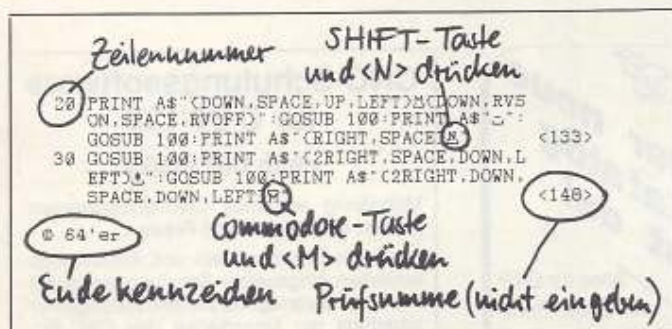 Zeilennummer
SHIFT-Taste
und <N> drücken
20 PRINT A$"{DOWN,SPACE,UP,LEFT}M{DOWN,RVS
ON,SPACE,RVOFF}":GOSUB 100:PRINT A$"":
GOSUB 100:PRINT A$"{RIGHT,SPACE}N <133>
30 GOSUB 100:PRINT A$"{2RIGHT,SPACE,DOWN,L
EFT}":GOSUB 100:PRINT A$"{2RIGHT,DOWN,
SPACE,DOWN,LEFT}M <148>
© 64'er
Commodore-Taste
und <M> drücken
Endekennzeichen
Prüfsumme (nicht eingeben)